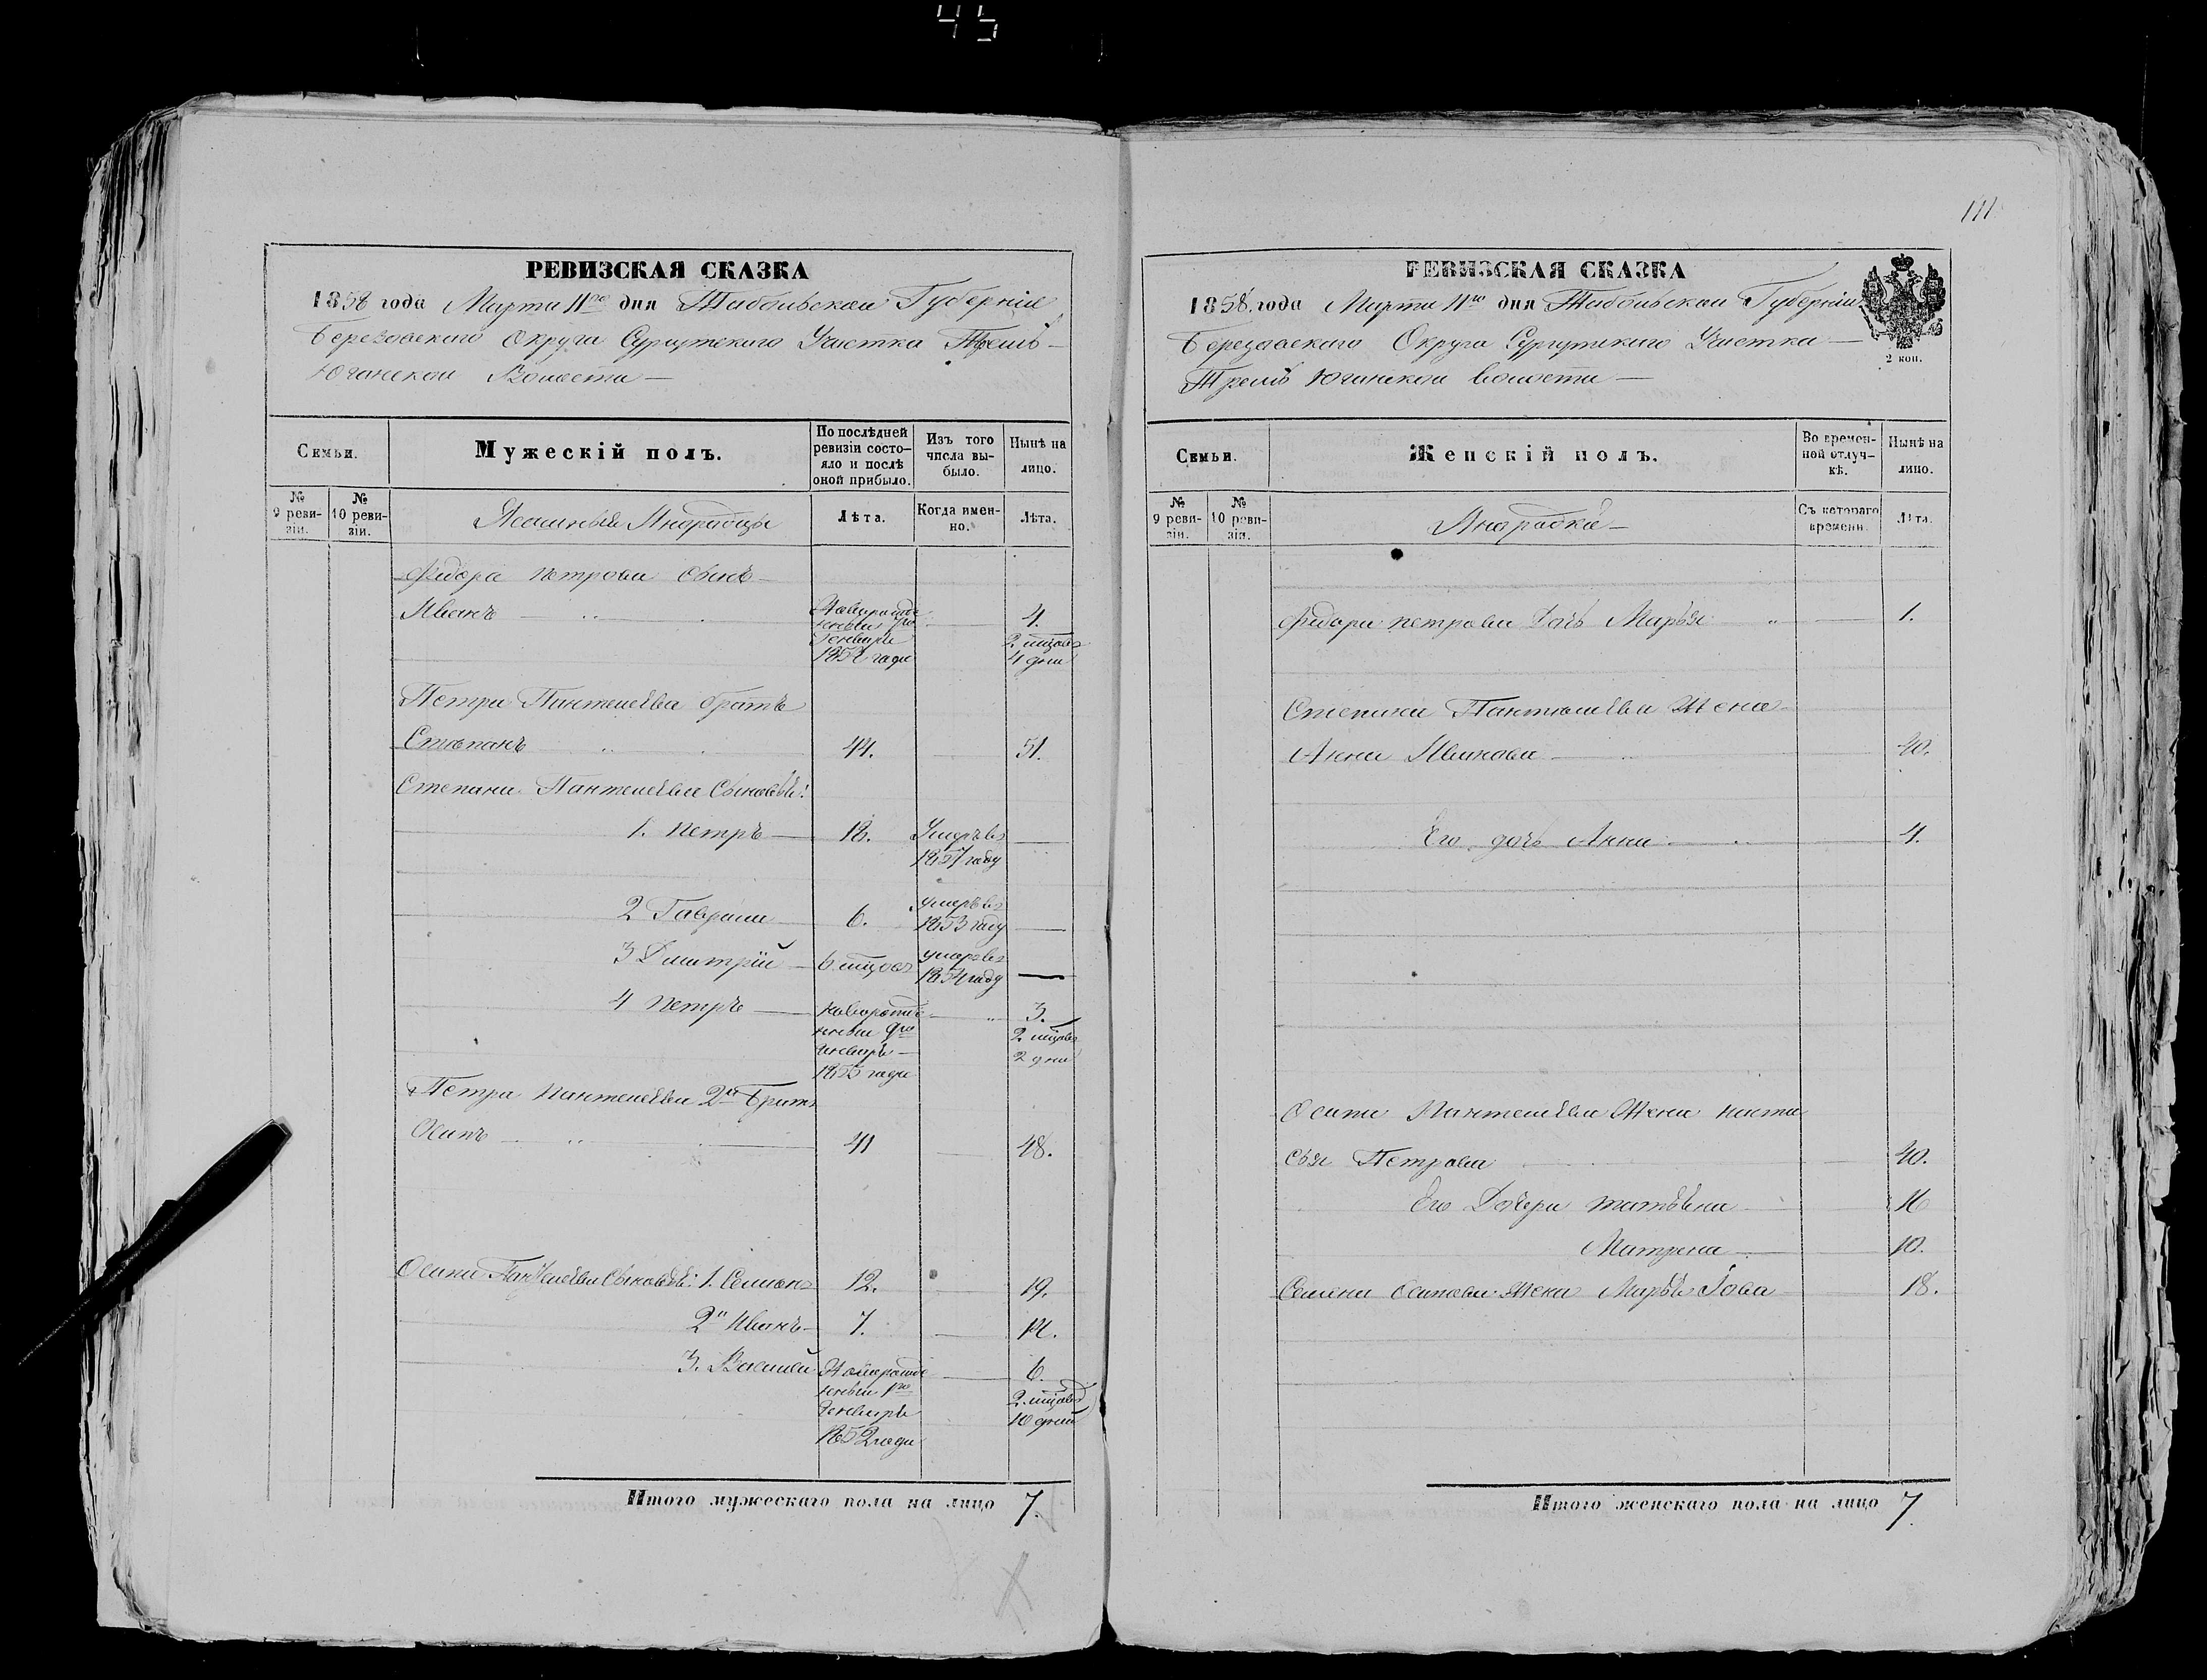 45
РЕВИЗСКАЯ СКАЗКА
1858 года Марта 11го дня Тобольской Губерніи
Березовскаго Округа Сургутскаго Участка Тремъ-
Юганской Волости
Семьи.
Мужескій полъ.
По послѣдней ревизіи состо-яло и послѣ оной прибыло.
Изъ того числа вы-было.
Нынѣ на лицо.
№ 9 реви-зіи.
№ 10 реви-зіи.
Ясашные Инородцы
Лѣта.
Когда имен-но.
Лѣта.
Федора Петрова Сынъ
Иванъ
4.
2 мѣсяц
4 дни
Петра Пантелѣева братъ
Степанъ 44. 51.
Степана Пантелѣева Сыновья:
1. Петръ 18. Умеръ въ
1857 году
2 Гаврила 6. умеръ въ
1853 году
3 Дмитрій умеръ въ
1854 году
4 Петръ новорожде 3.
нный 9го
Генваря 2 дни
1855 года
Петра Пантелѣева 2й Братъ
Осипъ 41 48.
Осипа Пантелѣева Сыновья: 1. Семенъ 12. 19.
2й Иванъ 7. 14.
3. Василей Новорожде 6.
нный 1го
Генваря 10 дней
1852 года
Итого мужескаго пола на лицо 7.
111
РЕВИЗСКАЯ СКАЗКА
1858. года Марта 11го дня Тобольской Губерніи
Березовскаго Округа Сургутскаго Участка
Тремъ Юганской волости
2 коп.
Семьи.
Женскій полъ.
Во времен-ной отлуч-кѣ.
Нынѣ на лицо.
№ 9 реви-зіи.
№ 10 реви-зіи.
Инородки
Съ котораго времени.
Лѣта.
Федора Петрова дочь Марья 1.
Степана Пантелѣева Жена
Анна Иванова 40.
Его дочь Анна 4.
Осипа Пантелѣева Жена Наста
сья Петрова 40.
Его Дочери Татьяна 16
Матрена 10.
Семена Осипова Жена Марья 18.
Итого женскаго пола на лицо 7.